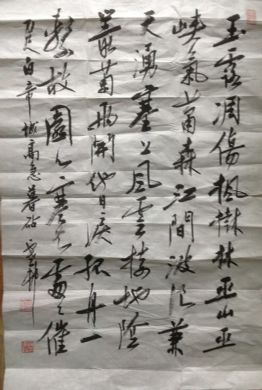 玉露凋傷楓樹林巫山巫
峽氣蕭森江間波浪兼
天湧塞上風雲接地陰
叢菊兩開他日淚孤舟一
繫故園心寒衣處々催
刀尺白帝城高急暮砧